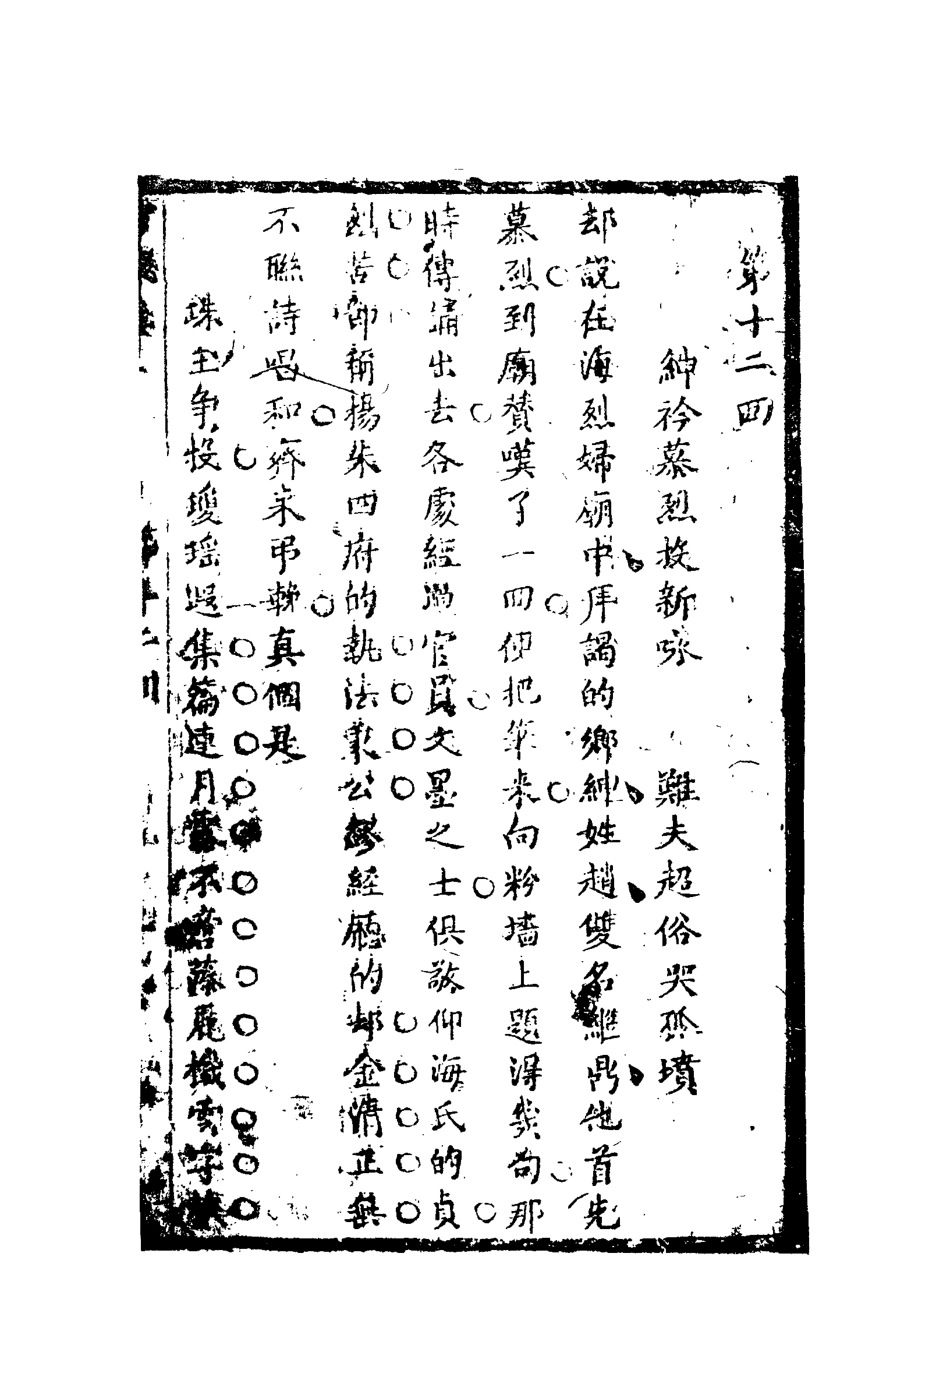 第十二回
紳衿慕烈投新咏　難夫超俗哭孤墳
却說在海烈婦廟中拜謁的鄉紳姓趙雙名繼鼎他首先
慕烈到廟賛嘆了一回便把筆來向粉墻上題淂幾句那
時傳誦出去各處經過官員文墨之士俱敬仰海氏的貞
烈苦節稱揚朱四府的執法秉公繆經廳的却金清正無
不聯詩唱和齊来弔輓真個是
珠玉争投瓊瑶遐集篇連月露不啻藻麗機雲字